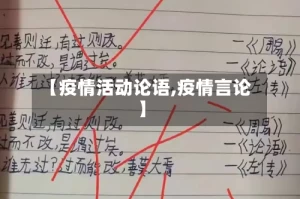 见善则迁,有过则改。 —《周易》
过而不改,是谓过矣。 —《论语》
人谁无过 —《左传》
【疫情活动论语,疫情言论
】
见善则迁,有过则改。 —《周易》
过而不改,是谓过矣。 —《论语》
谁无过?过而能改,善莫大焉 —《左传》